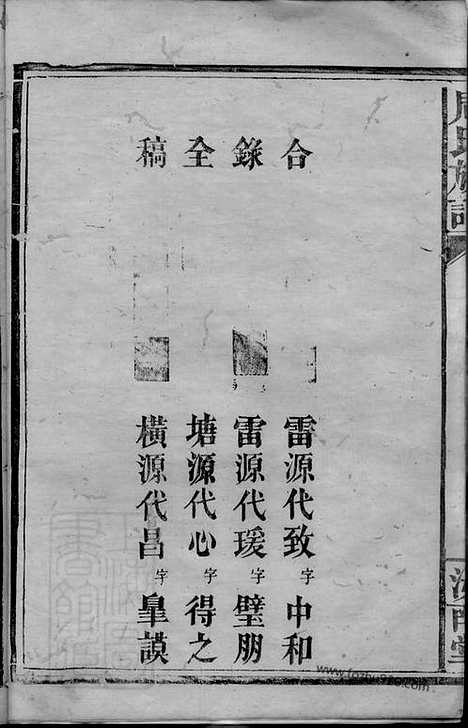 合 雷源代致字中和
錄 雷源代瑗字璧朋
全 塘源代心字得之
稿 橫源代昌字皐謨
氏族譜